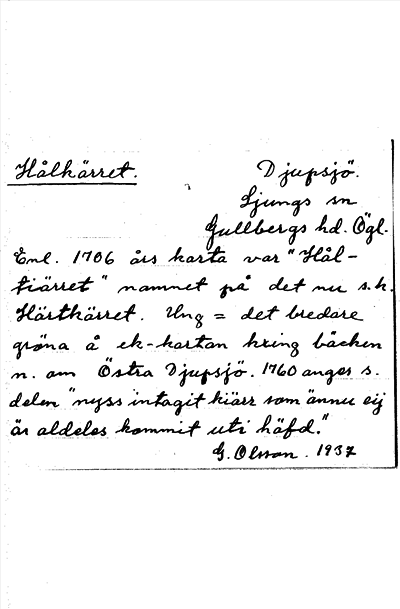 Hålkärret.
Djupsjö.
Ljungs sn
Gullbergs hd. Ögl.
Enl. 1706 års karta var "Hål-
kiärret" namnet på det nu s.k.
Hårtkärret. Ung = det bredare
gröna å ek-kartan kring bäcken
n. om Östra Djupsjö. 1760 anges s.
delen "nyss intagit kiärr som ännu eij
är aldeles kommit uti häfd."
G. Olsson. 1937